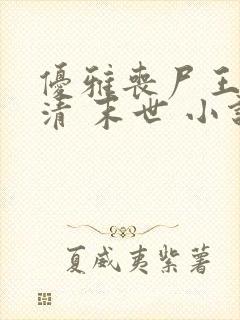 優雅喪尸王
清 末世 小說
夏威夷紫薯